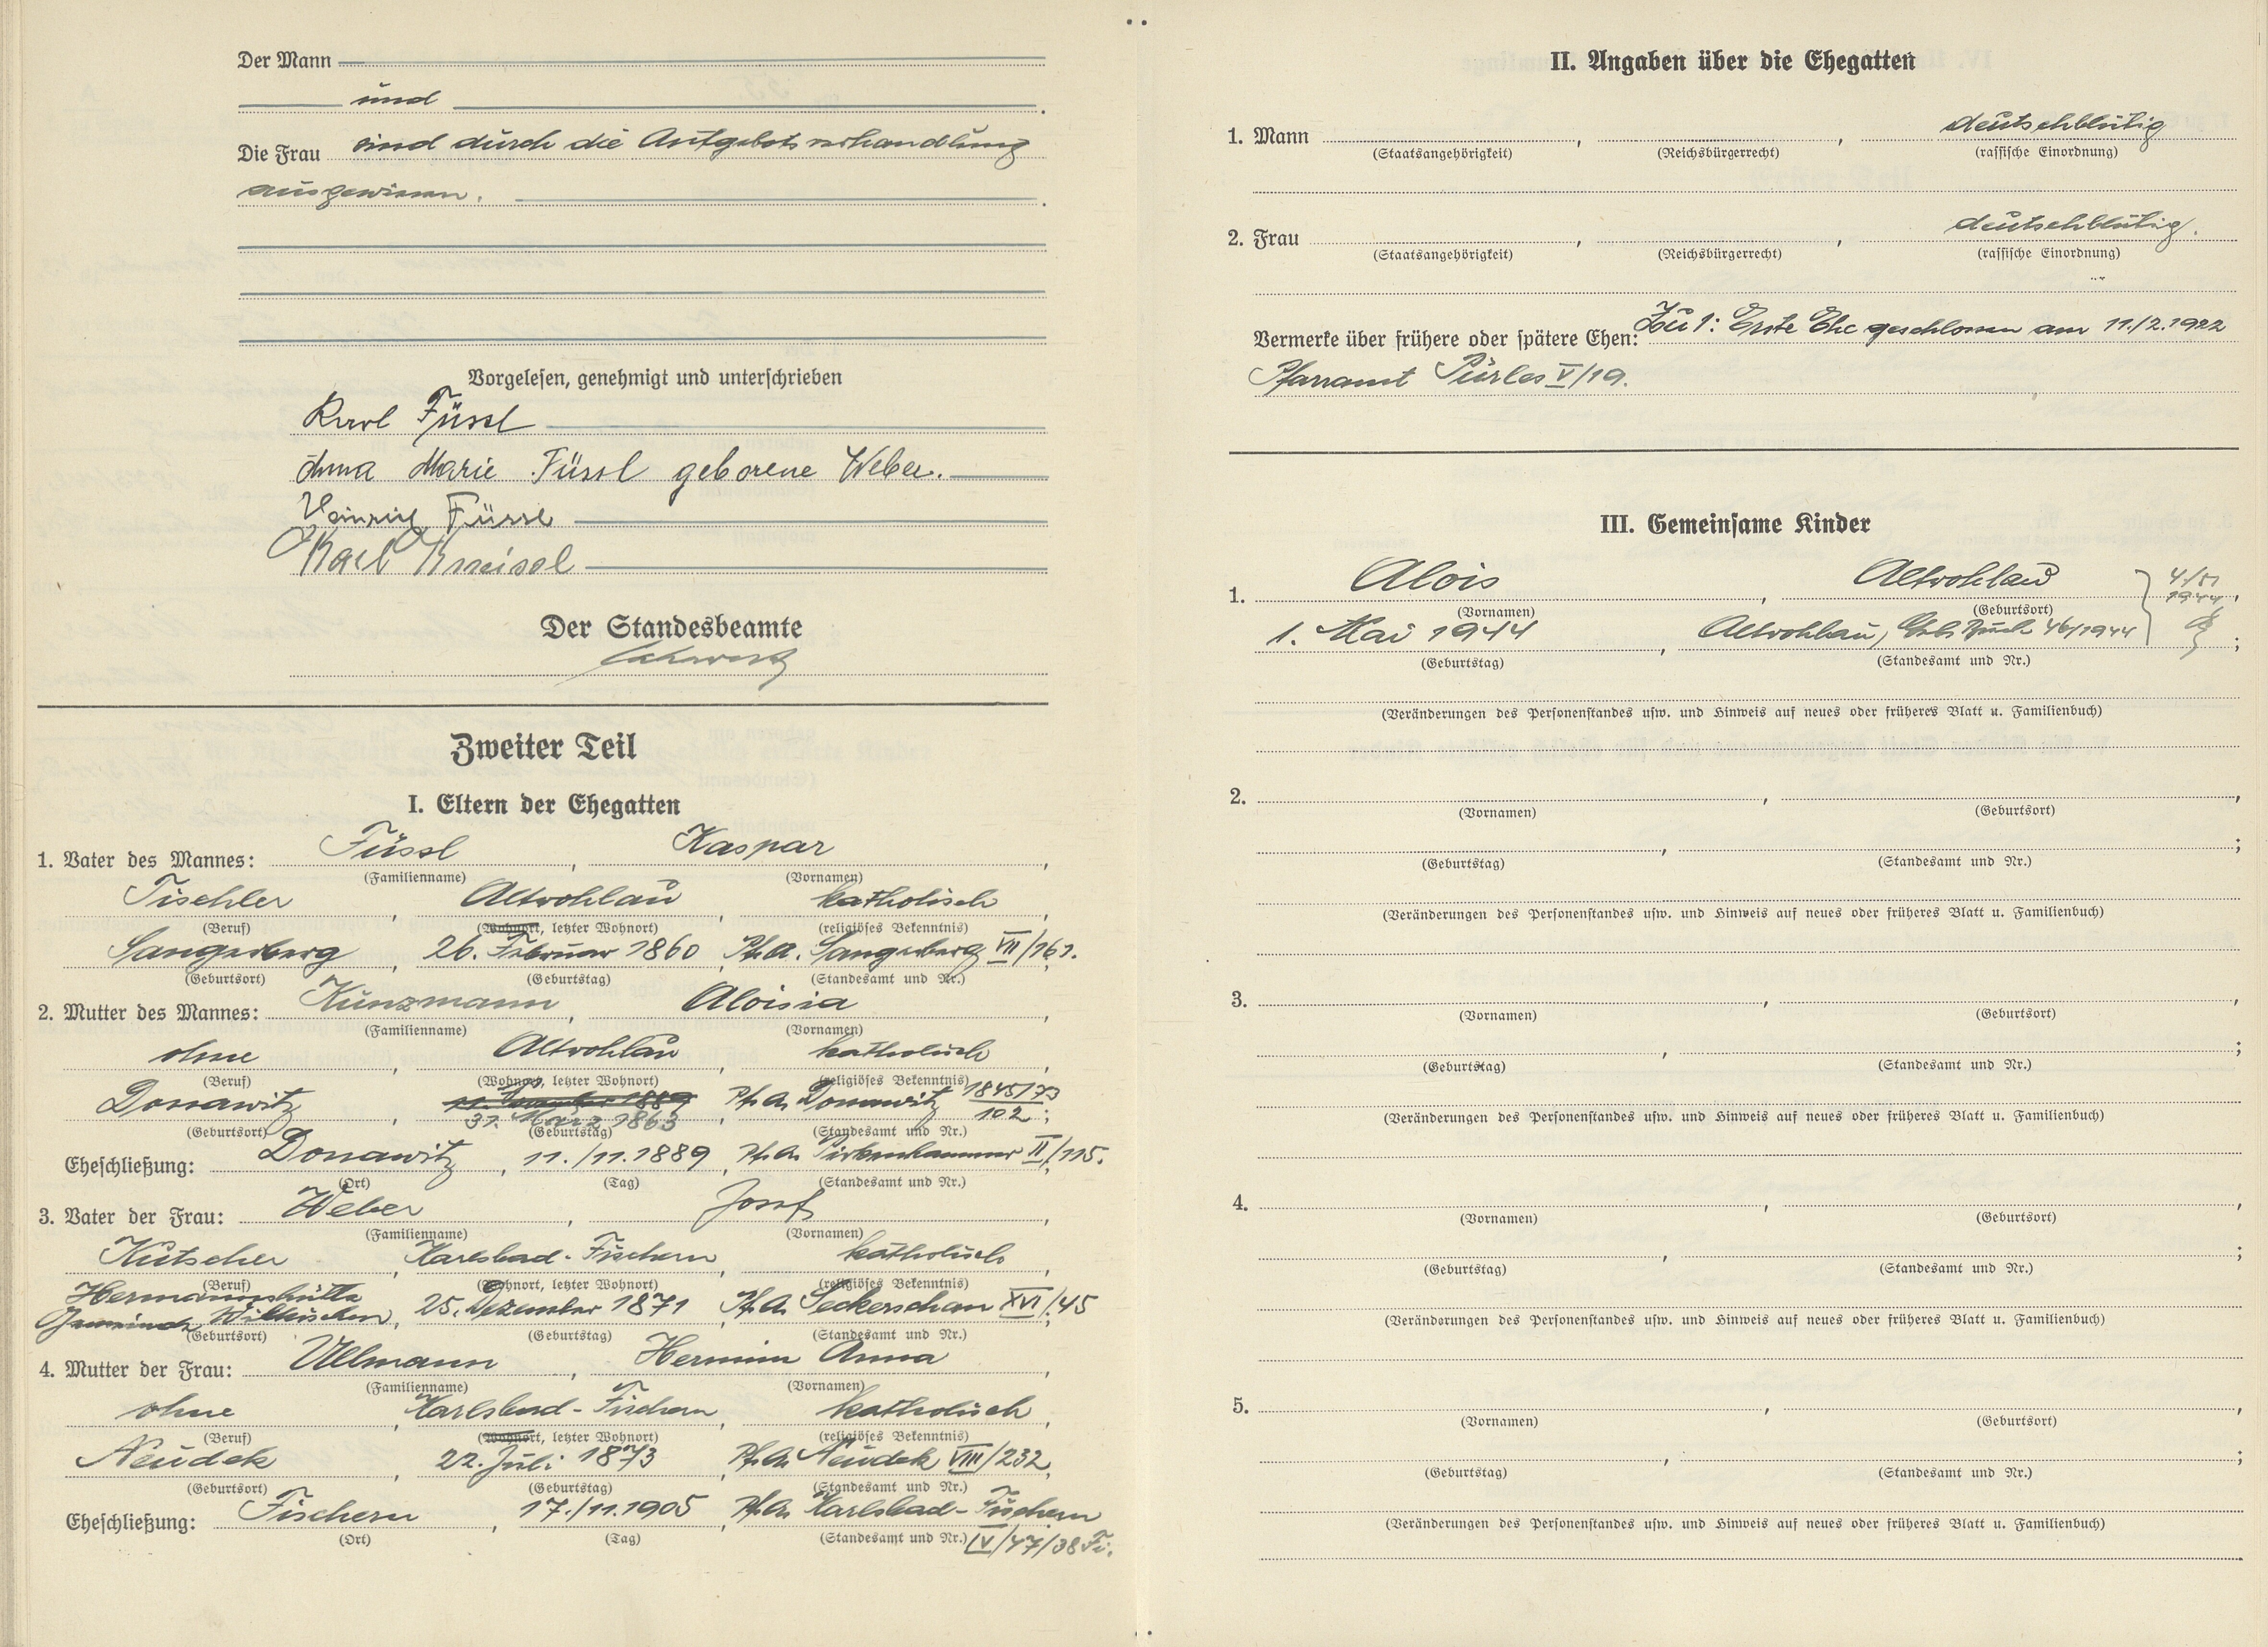 Der Mann
und
Die Frau sind durch die Aufgebotsverhandlung
ausgewiesen.
Vorgelesen, genehmigt und unterschrieben
Karl Füssl
Anna Marie Füssl geborene Weber.
Heinrich Füssl
Karl Kreissl
Der Standesbeamte
Zweiter Teil
I. Eltern der Ehegatten
1. Vater des Mannes: Füssl, Kaspar,
(Familienname) (Vornamen)
Tischler, Altrohlau, katholisch,
(Beruf) (Wohnort, letzter Wohnort) (religiöses Bekenntnis)
Sangerberg, 26. Februar 1860, Pf.A. Sangerberg VII/161.
(Geburtsort) (Geburtstag) (Standesamt und Nr.)
2. Mutter des Mannes: Kunzmann, Aloisia,
(Familienname) (Vornamen)
ohne, Altrohlau, katholisch,
(Beruf) (Wohnort, letzter Wohnort) (religiöses Bekenntnis)
Donawitz, 11. November 1889 Pf.A. Donawitz 1845/73
31. März 1863 102;
(Geburtsort) (Geburtstag) (Standesamt und Nr.)
Eheschließung: Donawitz, 11./11.1889, Pf.A. Pirkenhammer II/115.
(Ort) (Tag) (Standesamt und Nr.)
3. Vater der Frau: Weber, Josef,
(Familienname) (Vornamen)
Kutscher, Karlsbad-Fischern, katholisch,
(Beruf) (Wohnort, letzter Wohnort) (religiöses Bekenntnis)
Hermannshütte
Gemeinde Wilkischen, 25. Dezember 1871, Pf.A. Leckerschau XVI/45
(Geburtsort) (Geburtstag) (Standesamt und Nr.)
4. Mutter der Frau: Ullmann, Hermine Anna,
(Familienname) (Vornamen)
ohne, Karlsbad-Fischern, katholisch,
(Beruf) (Wohnort, letzter Wohnort) (religiöses Bekenntnis)
Neudek, 22. Juli 1873, Pf.A. Neudek VIII/232,
(Geburtsort) (Geburtstag) (Standesamt und Nr.)
Eheschließung: Fischern, 17./11.1905, Pf.A. Karlsbad-Fischern
(Ort) (Tag) (Standesamt und Nr.) IV/47/38 Fi.
II. Angaben über die Ehegatten
1. Mann, , deutschblütig
(Staatsangehörigkeit) (Reichsbürgerrecht) (rassische Einordnung)
2. Frau, , deutschblütig.
(Staatsangehörigkeit) (Reichsbürgerrecht) (rassische Einordnung)
Vermerke über frühere oder spätere Ehen: Zu 1: Erste Ehe geschlossen am 11./2.1922
Pfarramt Pürles V/19.
III. Gemeinsame Kinder
1. Alois, Altrohlau 4/VI 1944,
(Vornamen) (Geburtsort)
1. Mai 1944, Altrohlau, Geb. Buch 46/1944;
(Geburtstag) (Standesamt und Nr.)
(Veränderungen des Personenstandes usw. und Hinweis auf neues oder früheres Blatt u. Familienbuch)
2. , ,
(Vornamen) (Geburtsort)
, ;
(Geburtstag) (Standesamt und Nr.)
(Veränderungen des Personenstandes usw. und Hinweis auf neues oder früheres Blatt u. Familienbuch)
3. , ,
(Vornamen) (Geburtsort)
, ;
(Geburtstag) (Standesamt und Nr.)
(Veränderungen des Personenstandes usw. und Hinweis auf neues oder früheres Blatt u. Familienbuch)
4. , ,
(Vornamen) (Geburtsort)
, ;
(Geburtstag) (Standesamt und Nr.)
(Veränderungen des Personenstandes usw. und Hinweis auf neues oder früheres Blatt u. Familienbuch)
5. , ,
(Vornamen) (Geburtsort)
, ;
(Geburtstag) (Standesamt und Nr.)
(Veränderungen des Personenstandes usw. und Hinweis auf neues oder früheres Blatt u. Familienbuch)